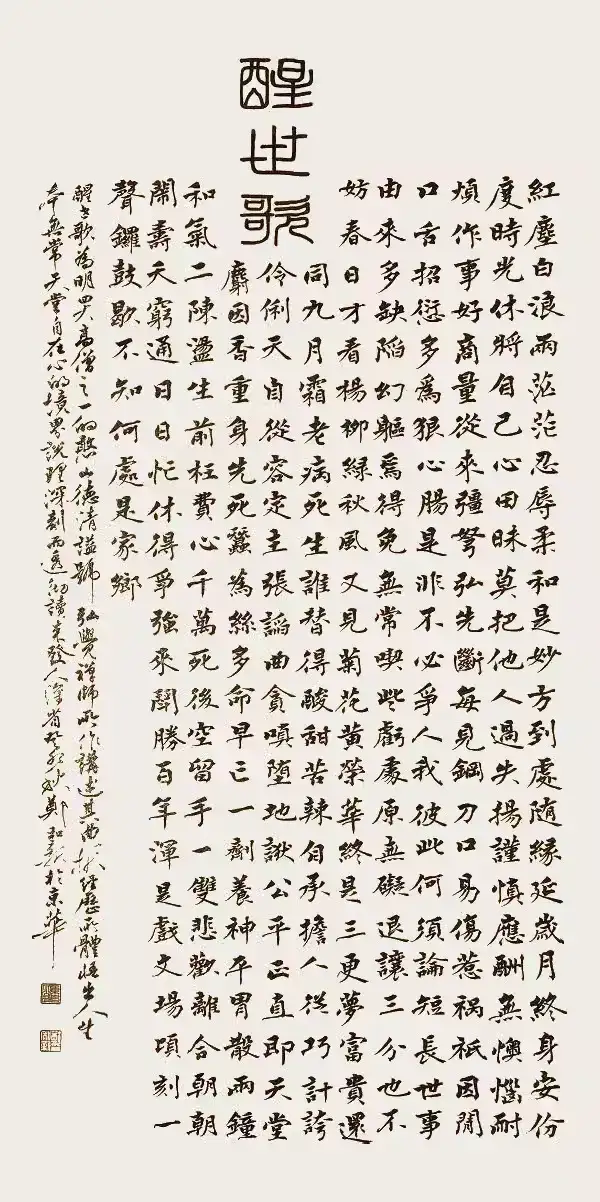 醒世歌
紅塵白浪兩茫茫忍辱柔和是妙方到處隨緣延歲月終身安份
度時光休將自己心田昧莫把他人過失揚謹慎應酬無懊惱耐
煩作事好商量從來彊弩弘先斷每見鋼刀口易傷惹禍衹因閒
口舌招愆多為狠心腸是非不必爭人我彼此何須論短長世事
由來多缺陷幻軀焉得免無常喫些虧處原無礙退讓三分也不
妨春日才看楊柳綠秋風又見菊花黃榮華終是三更夢富貴還
同九月霜老病死生誰替得酸甜苦辣自承擔人從巧計誇
伶俐天自從容定主張諂曲貪嗔墮地獄公平正直即天堂
麝因香重身先死蠶為絲多命早亡一劑養神平胃散兩鐘
和氣二陳盪生前枉費心千萬死後空留手一雙悲歡離合朝朝
鬧壽夭窮通日日忙休得爭強來鬥勝百年渾是戲文場頃刻一
聲鑼鼓歇不知何處是家鄉
醒世歌為明四大高僧之一的憨山德清諡號弘覺禪師所作講述其曲折經歷所體悟出人生
本無常天堂自在心的境界說理深刻而透徹讀來發人深省鄭和新於京華